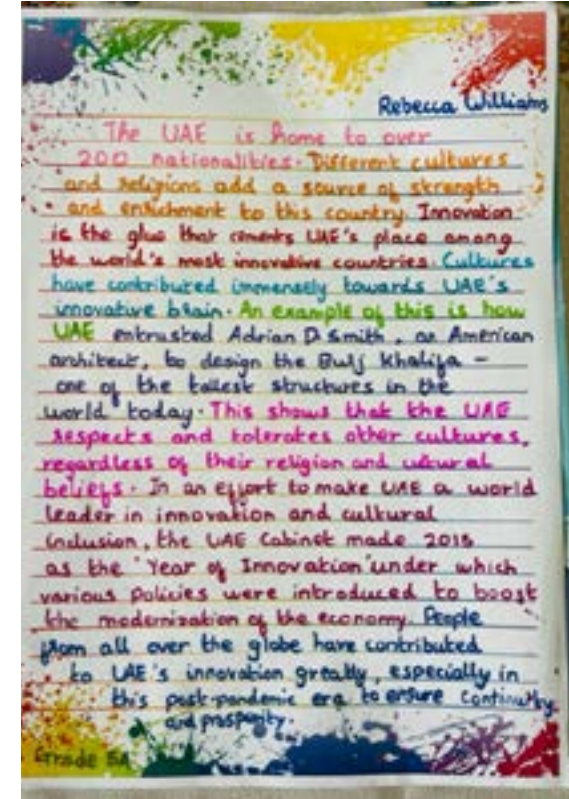 Rebecca Williams
The UAE is home to over
200 nationalities. Different cultures
and religions add a source of strength
and enrichment to this country. Innovation
is the glue that cements UAE's place among
the world's most innovative countries. Cultures
have contributed immensely towards UAE's
innovative brain. An example of this is how
UAE entrusted Adrian D. Smith, an American
architect, to design the Burj Khalifa –
one of the tallest structures in the
world today. This shows that the UAE
respects and tolerates other cultures,
regardless of their religion and cultural
beliefs. In an effort to make UAE a world
leader in innovation and cultural
inclusion, the UAE Cabinet made 2015
as the 'Year of Innovation' under which
various policies were introduced to boost
the modernization of the economy. People
from all over the globe have contributed
to UAE's innovation greatly, especially in
this post-pandemic era to ensure continuity
and prosperity.
Grade 5A